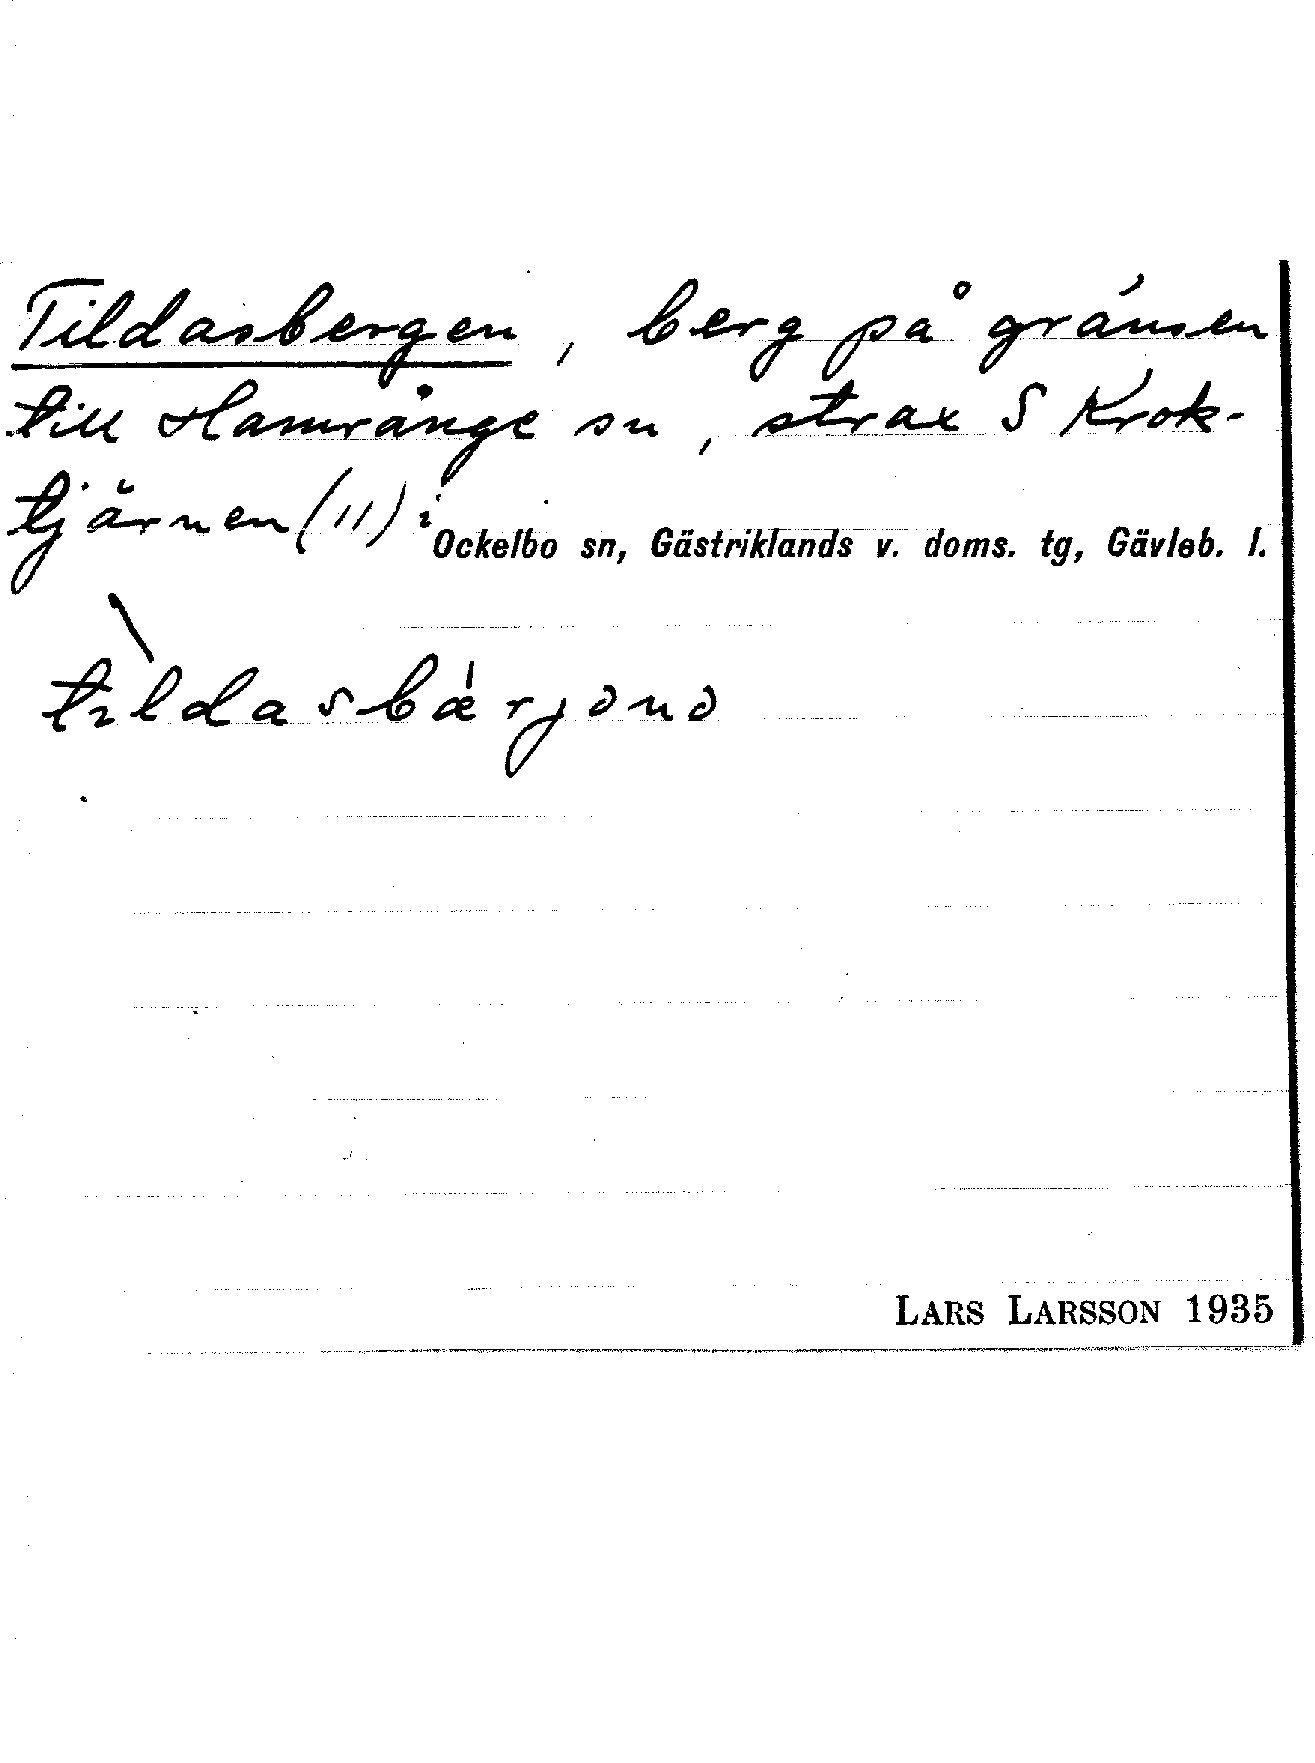 Tildasbergen, berg på gränsen
till Hamrånge sn, strax S Krok-
tjärnen (11) i
Ockelbo sn, Gästriklands v. doms. tg, Gävleb. l.
tɩldasbæ̍rjənə
LARS LARSSON 1935